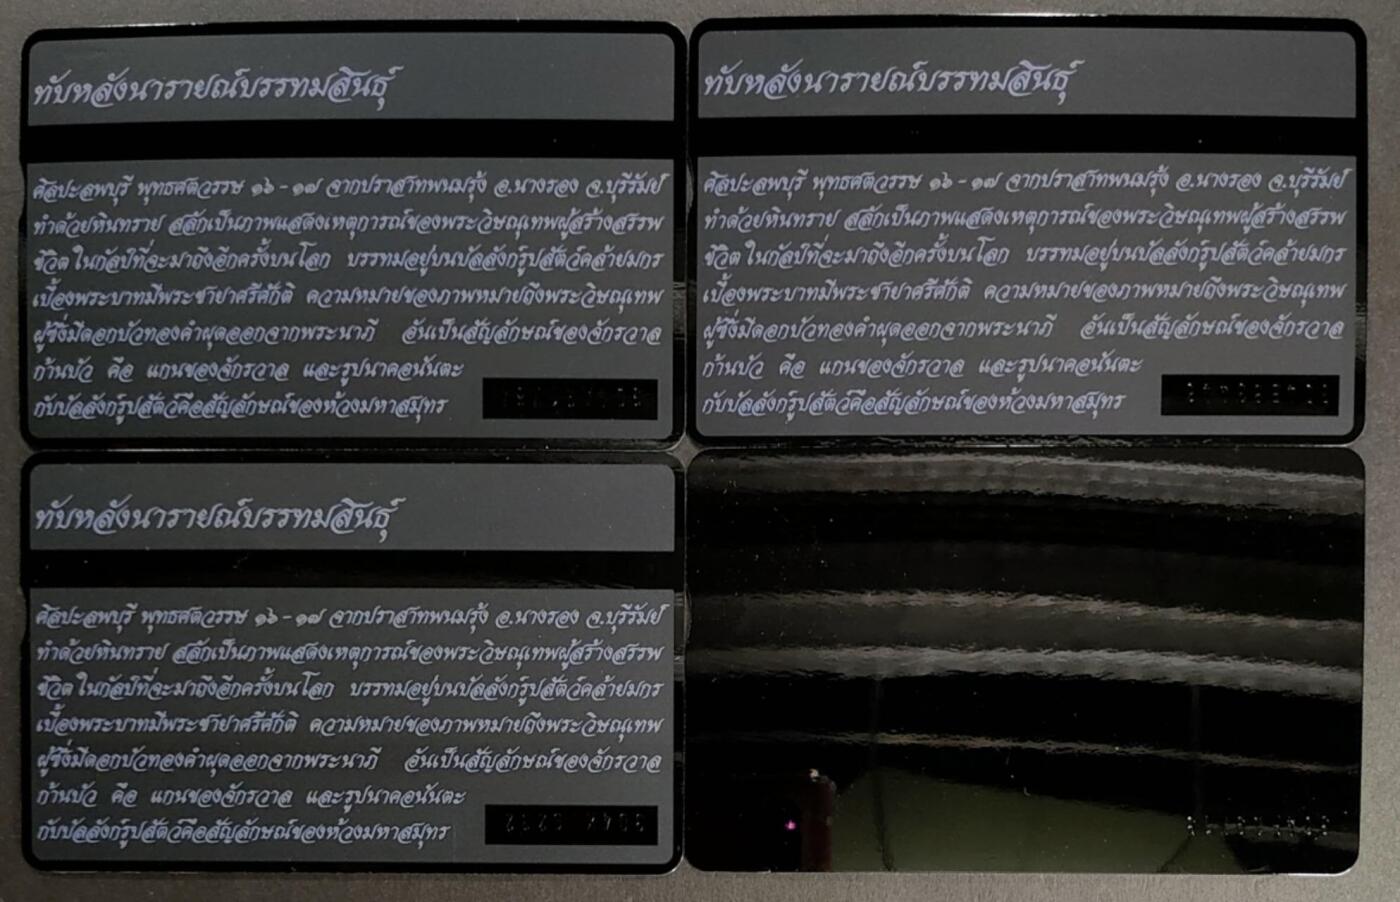 ทับหลังนารายณ์บรรทมสินธุ์
ศิลปะลพบุรี พุทธศตวรรษ ๑๖-๑๗ จากปราสาทพนมรุ้ง อ.นางรอง จ.บุรีรัมย์
ทำด้วยหินทราย สลักเป็นภาพแสดงเหตุการณ์ของพระวิษณุเทพผู้สร้างสรรพ
ชีวิตในกัลป์ที่จะมาถึงอีกครั้งบนโลก บรรทมอยู่บนบัลลังก์รูปสัตว์คล้ายมกร
เบื้องพระบาทมีพระชายาศรีศักติ ความหมายของภาพหมายถึงพระวิษณุเทพ
ผู้ซึ่งมีดอกบัวทองคำผุดออกจากพระนาภี อันเป็นสัญลักษณ์ของจักรวาล
ก้านบัว คือ แกนของจักรวาล และรูปนาคอนันตะ
กับบัลลังก์รูปสัตว์คือสัญลักษณ์ของห้วงมหาสมุทร
ทับหลังนารายณ์บรรทมสินธุ์
ศิลปะลพบุรี พุทธศตวรรษ ๑๖-๑๗ จากปราสาทพนมรุ้ง อ.นางรอง จ.บุรีรัมย์
ทำด้วยหินทราย สลักเป็นภาพแสดงเหตุการณ์ของพระวิษณุเทพผู้สร้างสรรพ
ชีวิตในกัลป์ที่จะมาถึงอีกครั้งบนโลก บรรทมอยู่บนบัลลังก์รูปสัตว์คล้ายมกร
เบื้องพระบาทมีพระชายาศรีศักติ ความหมายของภาพหมายถึงพระวิษณุเทพ
ผู้ซึ่งมีดอกบัวทองคำผุดออกจากพระนาภี อันเป็นสัญลักษณ์ของจักรวาล
ก้านบัว คือ แกนของจักรวาล และรูปนาคอนันตะ
กับบัลลังก์รูปสัตว์คือสัญลักษณ์ของห้วงมหาสมุทร
ทับหลังนารายณ์บรรทมสินธุ์
ศิลปะลพบุรี พุทธศตวรรษ ๑๖-๑๗ จากปราสาทพนมรุ้ง อ.นางรอง จ.บุรีรัมย์
ทำด้วยหินทราย สลักเป็นภาพแสดงเหตุการณ์ของพระวิษณุเทพผู้สร้างสรรพ
ชีวิตในกัลป์ที่จะมาถึงอีกครั้งบนโลก บรรทมอยู่บนบัลลังก์รูปสัตว์คล้ายมกร
เบื้องพระบาทมีพระชายาศรีศักติ ความหมายของภาพหมายถึงพระวิษณุเทพ
ผู้ซึ่งมีดอกบัวทองคำผุดออกจากพระนาภี อันเป็นสัญลักษณ์ของจักรวาล
ก้านบัว คือ แกนของจักรวาล และรูปนาคอนันตะ
กับบัลลังก์รูปสัตว์คือสัญลักษณ์ของห้วงมหาสมุทร